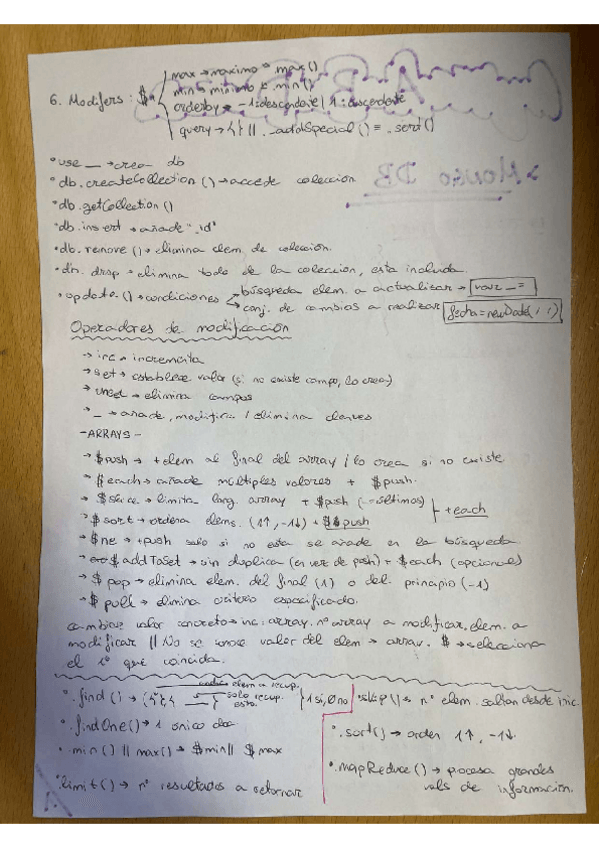 6. Modifers: $
max → maximo = max()
min → minimo = .min()
orderby → -1: descendente | 1: descendente
query → {} || ._addSpecial() = .sort()
• use __ → crea db
• db.createCollection() → accede colección
• db.getCollection()
• db.insert → añade "_id"
• db.remove() → elimina elem. de colección.
• db. drop → elimina todo de la coleccion, esta incluida.
• update.() → condiciones
búsqueda elem. a actualizar → var __ =
conj. de cambios a realizar
fecha = newDate( , , )
Operadores de modificación
→ inc → incrementa
→ set → establece valor (si no existe campo, lo crea)
→ unset → elimina campos
→ _ → añade, modifica / elimina claves
- ARRAYS -
→ $push → + elem al final del array / lo crea si no existe
→ $each → añade múltiples valores + $push.
→ $slice → limita long. array + $push (- = últimos)
+ each
→ $sort → ordena elems. (1↑, -1↓) + $push
→ $ne → + push solo si no esta se añade en la búsqueda
→ $addToSet → sin duplica (en vez de push) + $each (opcional)
→ $pop → elimina elem. del final (1) o del principio (-1)
→ $pull → elimina criterio especificado.
cambiar valor concreto → inc: array. nº array a modificar, elem. a
modificar || No se conoce valor del elem → array. $ → selecciona
el 1º que coincida.
• .find() →
elem a recup.
solo recup. esto.
1 si, 0 no
• skip() → nº elem. saltan desde inic.
• .findOne() → 1 único doc
• .sort() → orden 1↑, -1↓.
• .min() || max() → $min || $max
• .mapReduce() → procesa grandes
vols de información.
• .limit() → nº resultados a retornar
MONGO DB